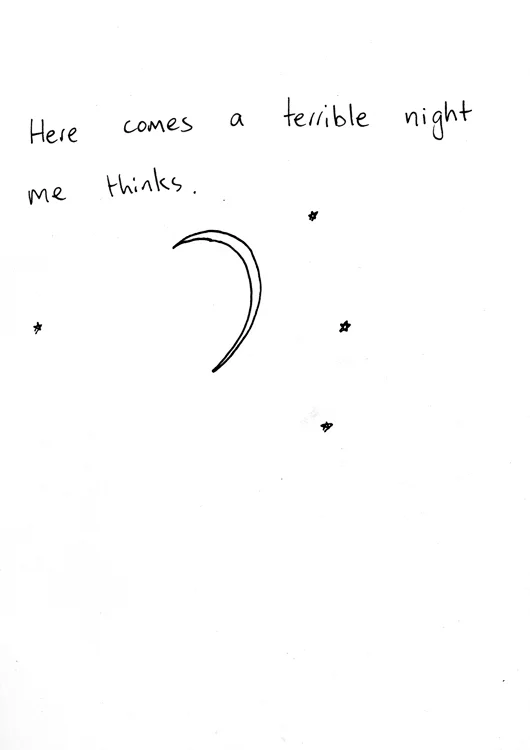 Here comes a terrible night
me thinks.